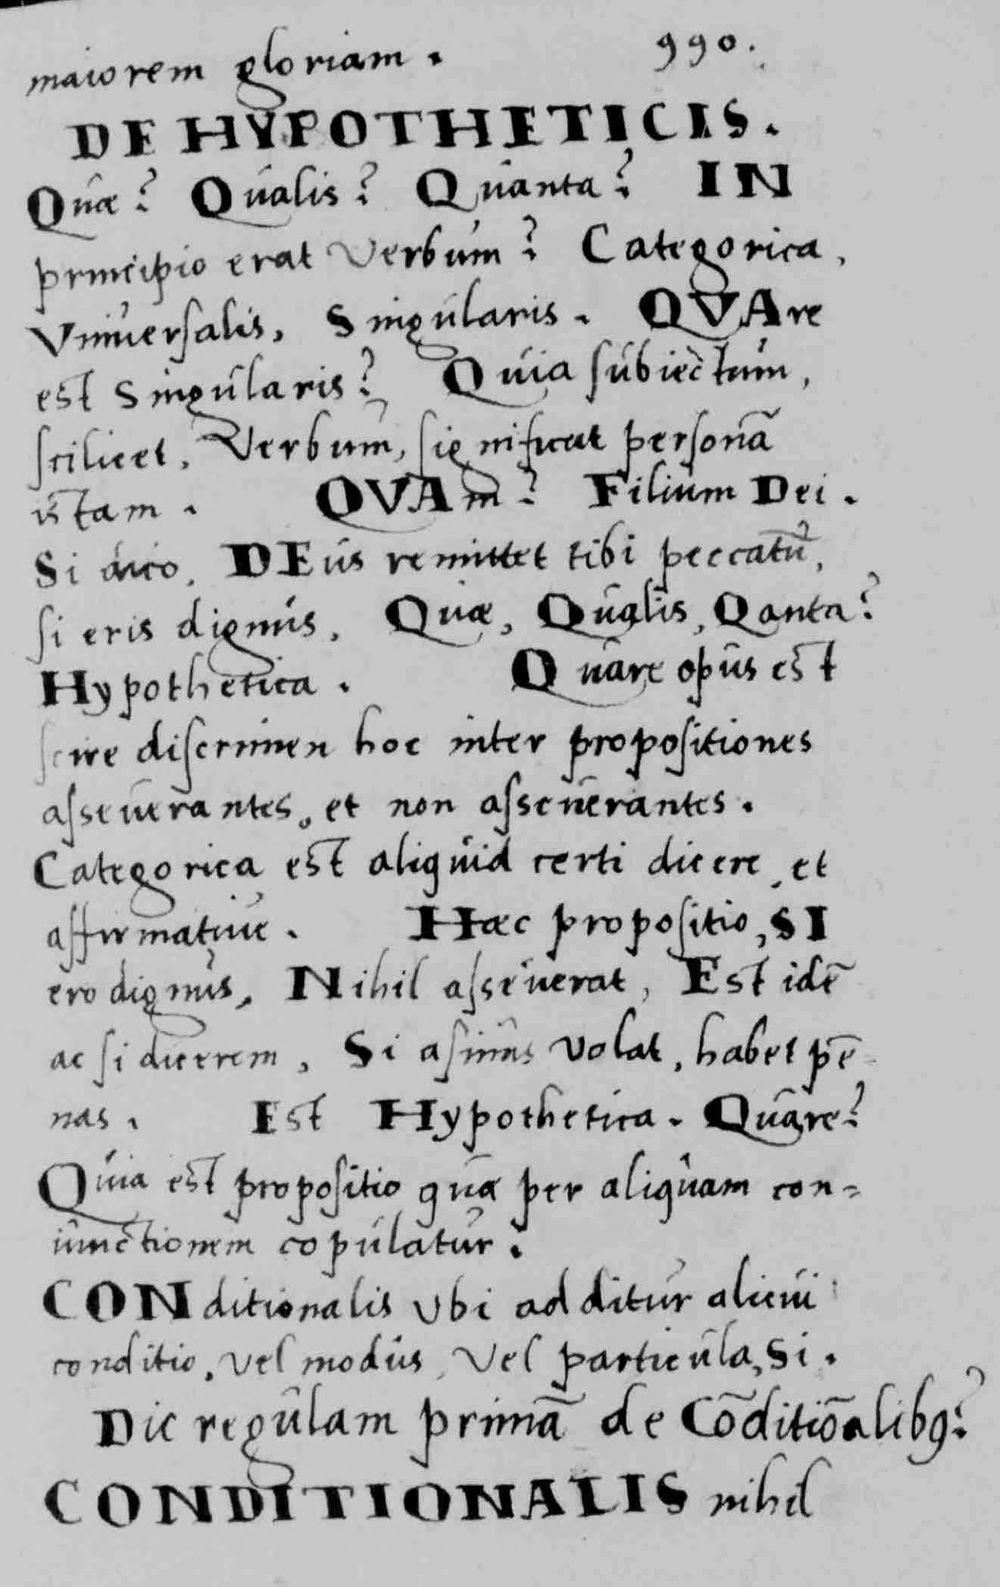 maiorem gloriam. 990.
DE HYPOTHETICIS.
Quæ? Qualis? Quanta? IN
principio erat Verbum? Categorica,
Vniuersalis, Singularis. QVAre
est Singularis? Quia subiectum,
scilicet, Verbum, significat personā
istam. QVAm? Filium Dei.
Si dico, DEus remittet tibi peccatū,
si eris dignus, Quæ, Qualis, Qanta?
Hypothetica. Quare opus est
scire discrimen hoc inter propositiones
asseuerantes, et non asseuerantes.
Categorica est aliquid certi dicere, et
affirmatiue. Hæc propositio, SI
ero dignus, Nihil asseuerat, Est idē
ac si dicerem, Si asinus volat, habet pē-
nas. Est Hypothetica. Quare?
Quia est propositio quæ per aliquam con-
iunctionem copulatur.
CONditionalis Vbi additur alicui
conditio, vel modus, Vel particula, Si.
Dic regulam primā de Cōditiōalibꝯ?
CONDITIONALIS nihil